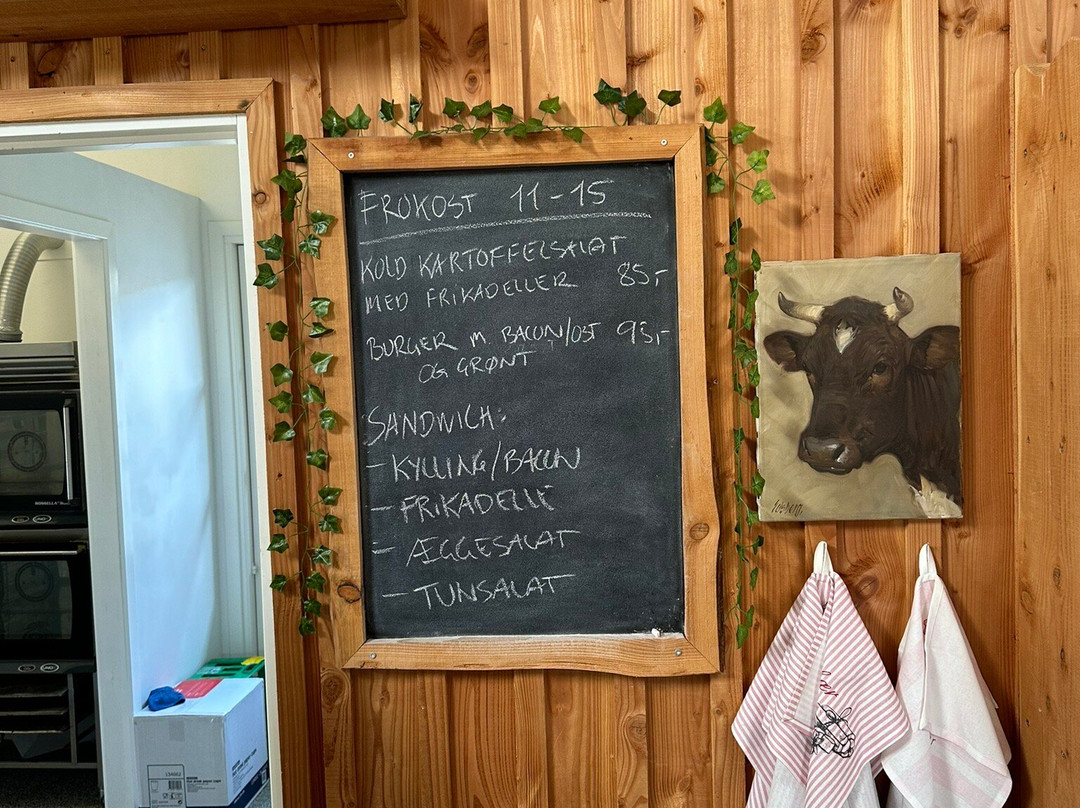 FROKOST 11-15
KOLD KARTOFFELSALAT
MED FRIKADELLER 85,-
BURGER M. BACON/OST 95,-
OG GRØNT
SANDWICH:
- KYLLING/BACON
- FRIKADELLE
- ÆGGESALAT
- TUNSALAT